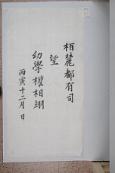 柏麓都有司
望
幼學權相翊
丙寅十二月 日